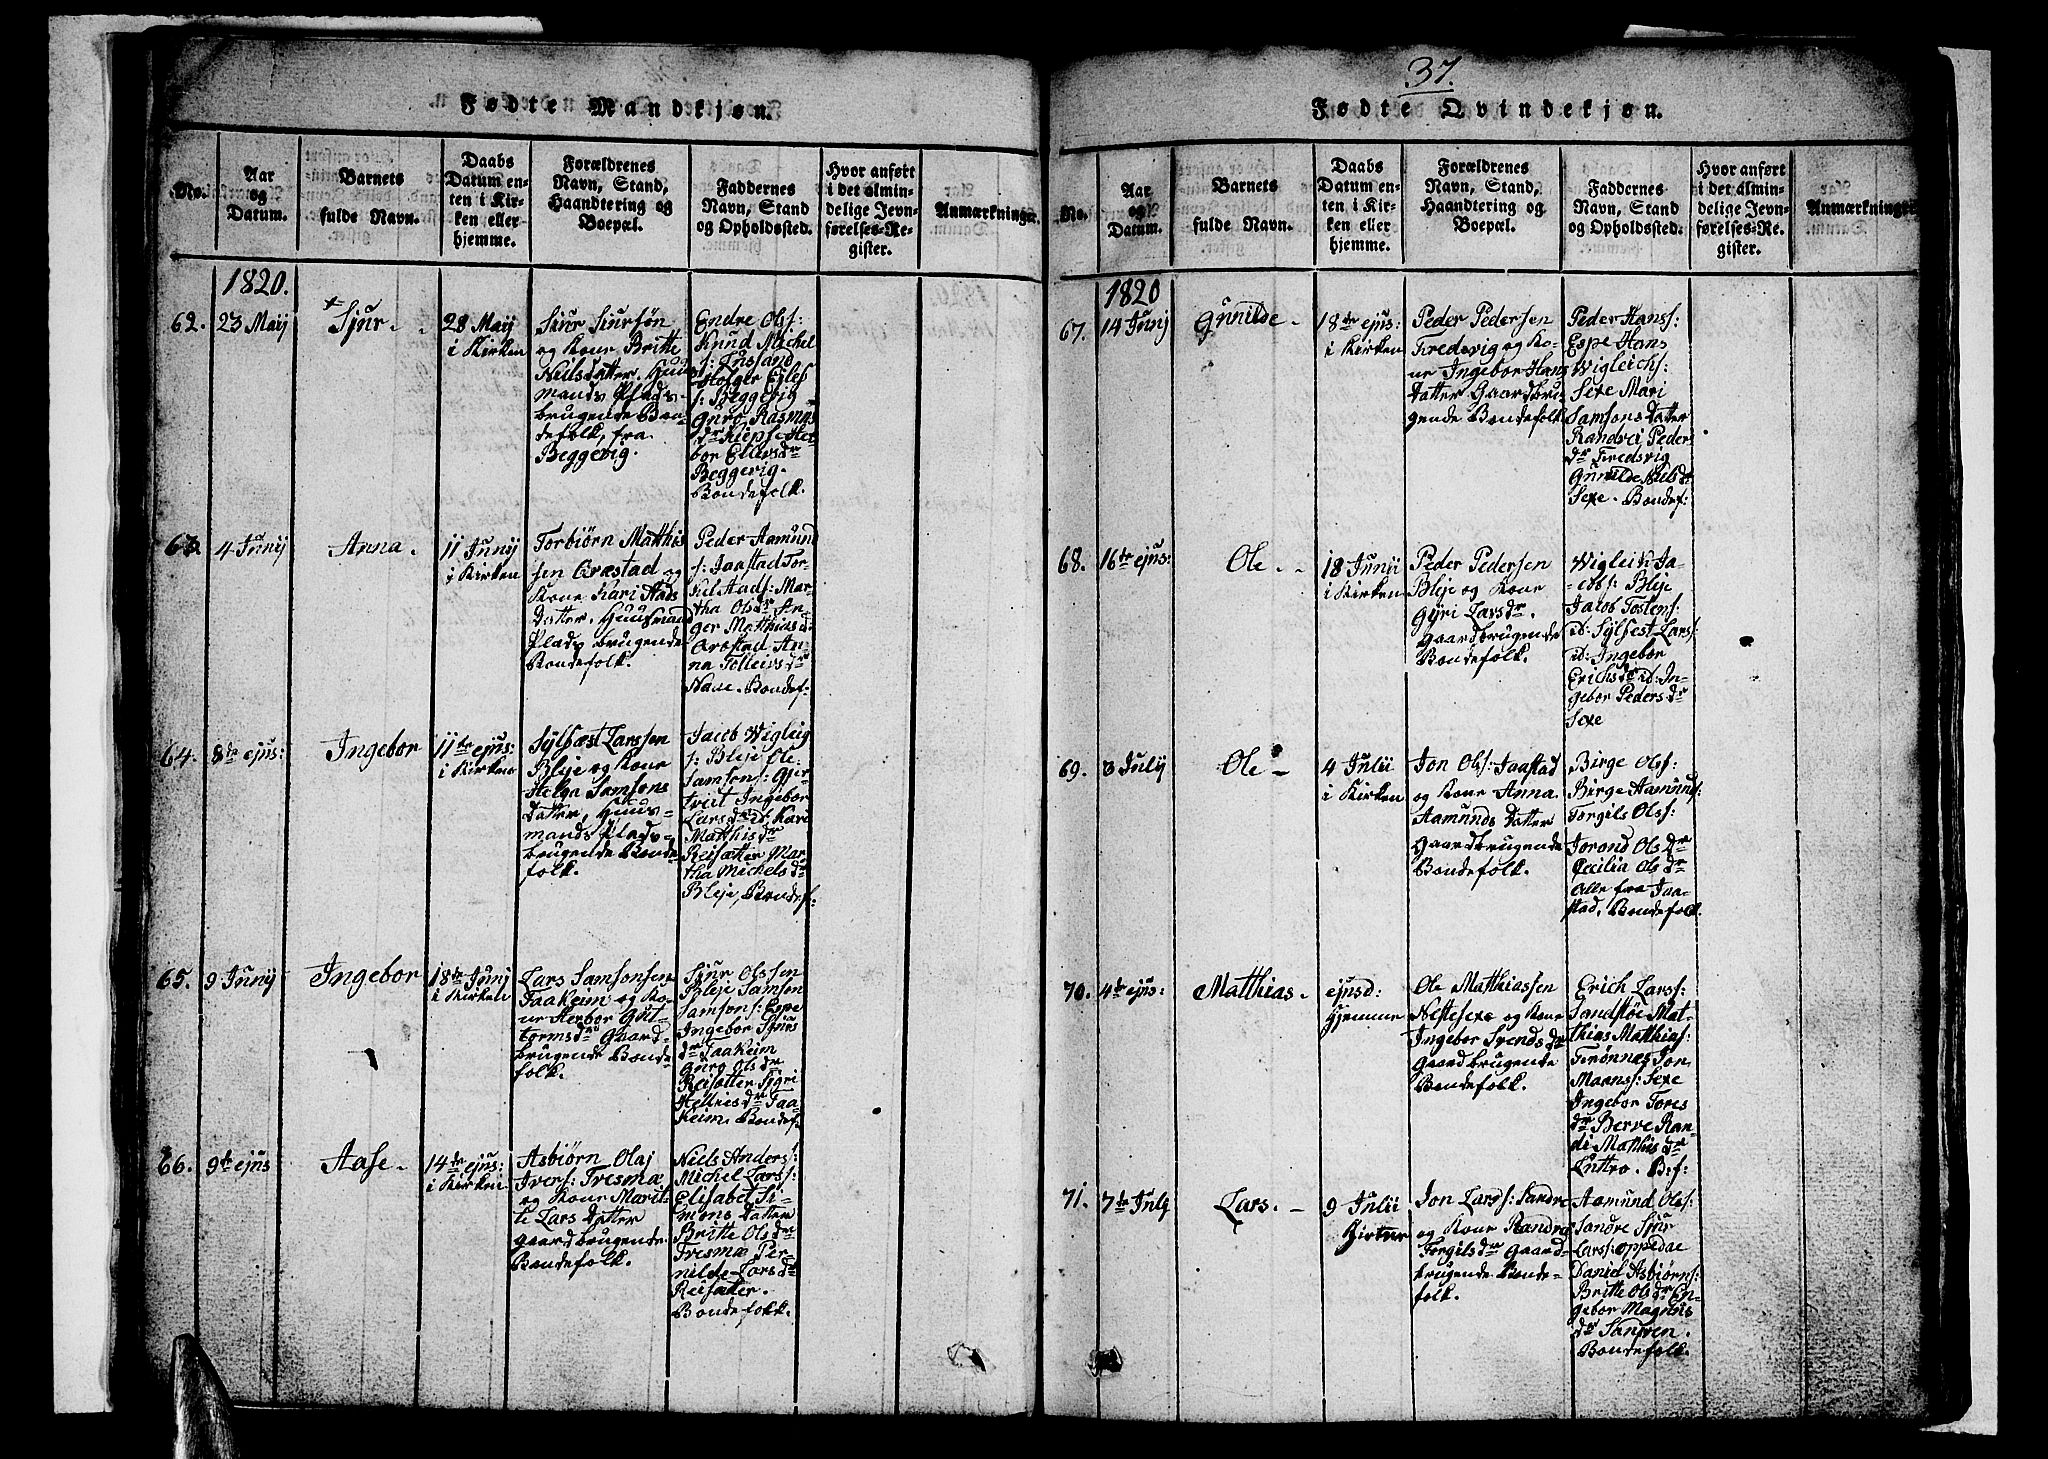 37.
Fødte Mandkjøn.
No.
Aar
og
Datum.
Barnets
fulde Navn.
Daabs
Datum en-
ten i Kir-
ken eller
hjemme.
Forældrenes
Navn, Stand,
Haandtering og
Boepæl.
Faddernes
Navn, Stand
og Opholdssted.
Hvor anført
i det almin-
delige Jevn-
førelses-Re-
gister.
Anmærkninger.
1820.
62.
23 Maij
Sjur
28 Maij
i Kirken
Siur Siursøn
og Kone Britte
Neilsdatter. Huus
mands Plads-
brugende Bon-
defolk, fra
Beggevig.
Endre Ols:
Knud Michel
s:
Holger Eilef
s: Beggevig
Guro Rasmus
dr Kiepse Her
bor Eilevs dr
Beggevig.
Bondefolk.
63.
4 Junij
Anna.
11 Junij
i Kirken
Torbiörn Matthis
sen Aræstad og
Kone Kari Aads
Datter, Huusmand
Plads brugende
Bondefolk.
Peder Aamund
s: Jaastad Tor-
kel Aads: Mar-
tha Ols dr In-
ger Matthias d:
Aræstad An-
na Tolleivs dr
Nane. Bondef:
64.
8de ejus:
Ingebor
11te ejus:
i Kirken
Sylfæst Larssen
Bleje og Kone
Helga Samsons
Datter, Huus-
mands Plads-
brugende Bonde
folk.
Jacob Wigleig
s: Bleje Ole
Samsons: Gjer
tveit Ingebor
Lars dr id: Kari
Matthis dr
Reisæter Mar-
tha Michels dr
Bleje, Bondef:
65.
9 Junij
Ingebor
18de Junj
i Kirken
Lars Samsonsen
Jaakeim og Ko-
ne Herbor Gut-
torms dr Gaard-
brugende Bonde
folk.
Sjur Olssen
Bleje Samson
Samsons: Espe
Ingebor Sjurs
dr Jaakeim
Guro Ols dr
Reisæter Sygri
Helljes dr Jaa-
keim. Bondef:
66.
9de ejus
Aase.
14de ejus:
i Kirken
Asbiörn Olaj
Ivers: Tresmæ
og Kone Marit-
te Lars Datter
gaardbrugende
Bondefolk.
Niels Anders:
Michel Lars:
Elisabet Si-
mons Datter
Britte Ols dr
Tresmæ Per-
nilde Lars dr
Reisæter.
Bondefolk.
Fødte Qvindekjøn.
No.
Aar
og
Datum.
Barnets
fulde Navn.
Daabs
Datum en-
ten i Kir-
ken eller
hjemme.
Forældrenes
Navn, Stand,
Haandtering og
Boepæl.
Faddernes
Navn, Stand
og Opholdssted.
Hvor anført
i det almin-
delige Jevn-
førelses-Re-
gister.
Anmærkninger
1820
67.
14 Junj
Gunilde
18de ejus:
i Kirken
Peder Pedersen
Fredsvig og Ko-
ne Ingebor Hans
Datter Gaardbru
gende Bondefolk
Peder Hans:
Espe Hans
Wigleichs:
Sexe Mari
Samsons Datter
Randvei Peder
dr Fredsvig
Gunilde Niels dr
Sexe. Bondef:
68.
16de ejus:
Ole
18 Junii
i Kirken
Peder Pedersen
Bleje og Kone
Gyri Lars dr.
gaardbrugende
Bondefolk.
Wigleik Ja-
cobs: Bleje
Jacob Tostens:
id: Sylfest Lars:
id: Ingebor
Erichs dr id: In-
gebor Peders dr
Sexe
69.
3 July
Ole
4 Julii
i Kirken
Jon Ols: Jaastad
og Kone Anna
Aamunds Datter
Gaardbrugende
Bondefolk.
Birge Ols:
Birge Aamunds:
Torgils Ols:
Jorond Ols dr
Cecilia Ols dr
Alle fra Jaa-
stad, Bondefolk.
70.
4de ejus:
Matthias
ejusd:
Hjemme
Ole Matthiassen
Nestesexe og Kone
Ingebor Svends dr
Gaardbrugende
Bondefolk.
Erich Lars:
Sandstøe Mat-
thias Matthias:
Frønnæs Jon
Maans: Sexe
Ingebor Tores
dr Berve Ran-
di Matthis dr
Luttro. B:f:
71.
7de July
Lars.
9 Julii
Kirken
Jon Lars: Sandre
og Kone Randve
Torgils dr Gaard-
brugende Bonde-
folk.
Aamund Ols:
Sandre Sjur
Lars: Oppedal
Daniel Asbiörns:
Britte Ols dr In-
gebor Magnus
dr Sanven.
Bondefolk.